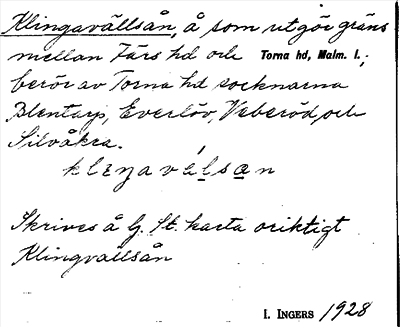 Klingavällsån, å som utgör gräns
mellan Färs hd och Torna hd, Malm. l.;
berör av Torna hd socknarna
Blentarp, Everlöv, Veberöd, och
Silvåkra.
klеŋavélsan
Skrives å G. St. karta oriktigt
Klingvallsån
I. INGERS 1928